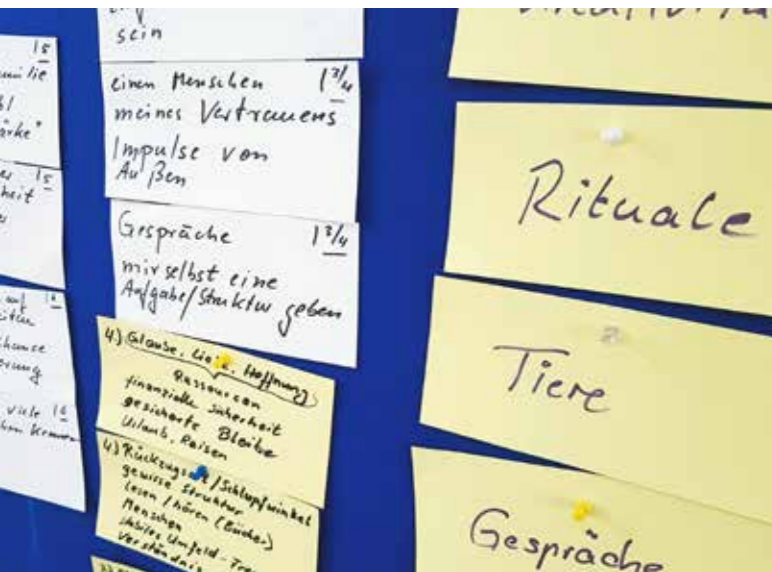 15
15
heit
16
viele 16
sein
einen Menschen 1 3/4
meines Vertrauens
Impulse von
Außen
Gespräche 1 3/4
mir selbst eine
Aufgabe/Struktur geben
4.) Glaube, Liebe, Hoffnung
Ressourcen
finanzielle Sicherheit
gesicherte Bleibe
Urlaub, Reisen
4.) Rückzugsort/Schlupfwinkel
gewisse Struktur
lesen/hören (Bücher)
Menschen
stabiles Umfeld -
Verständnis
Rituale
Tiere
Gespräche